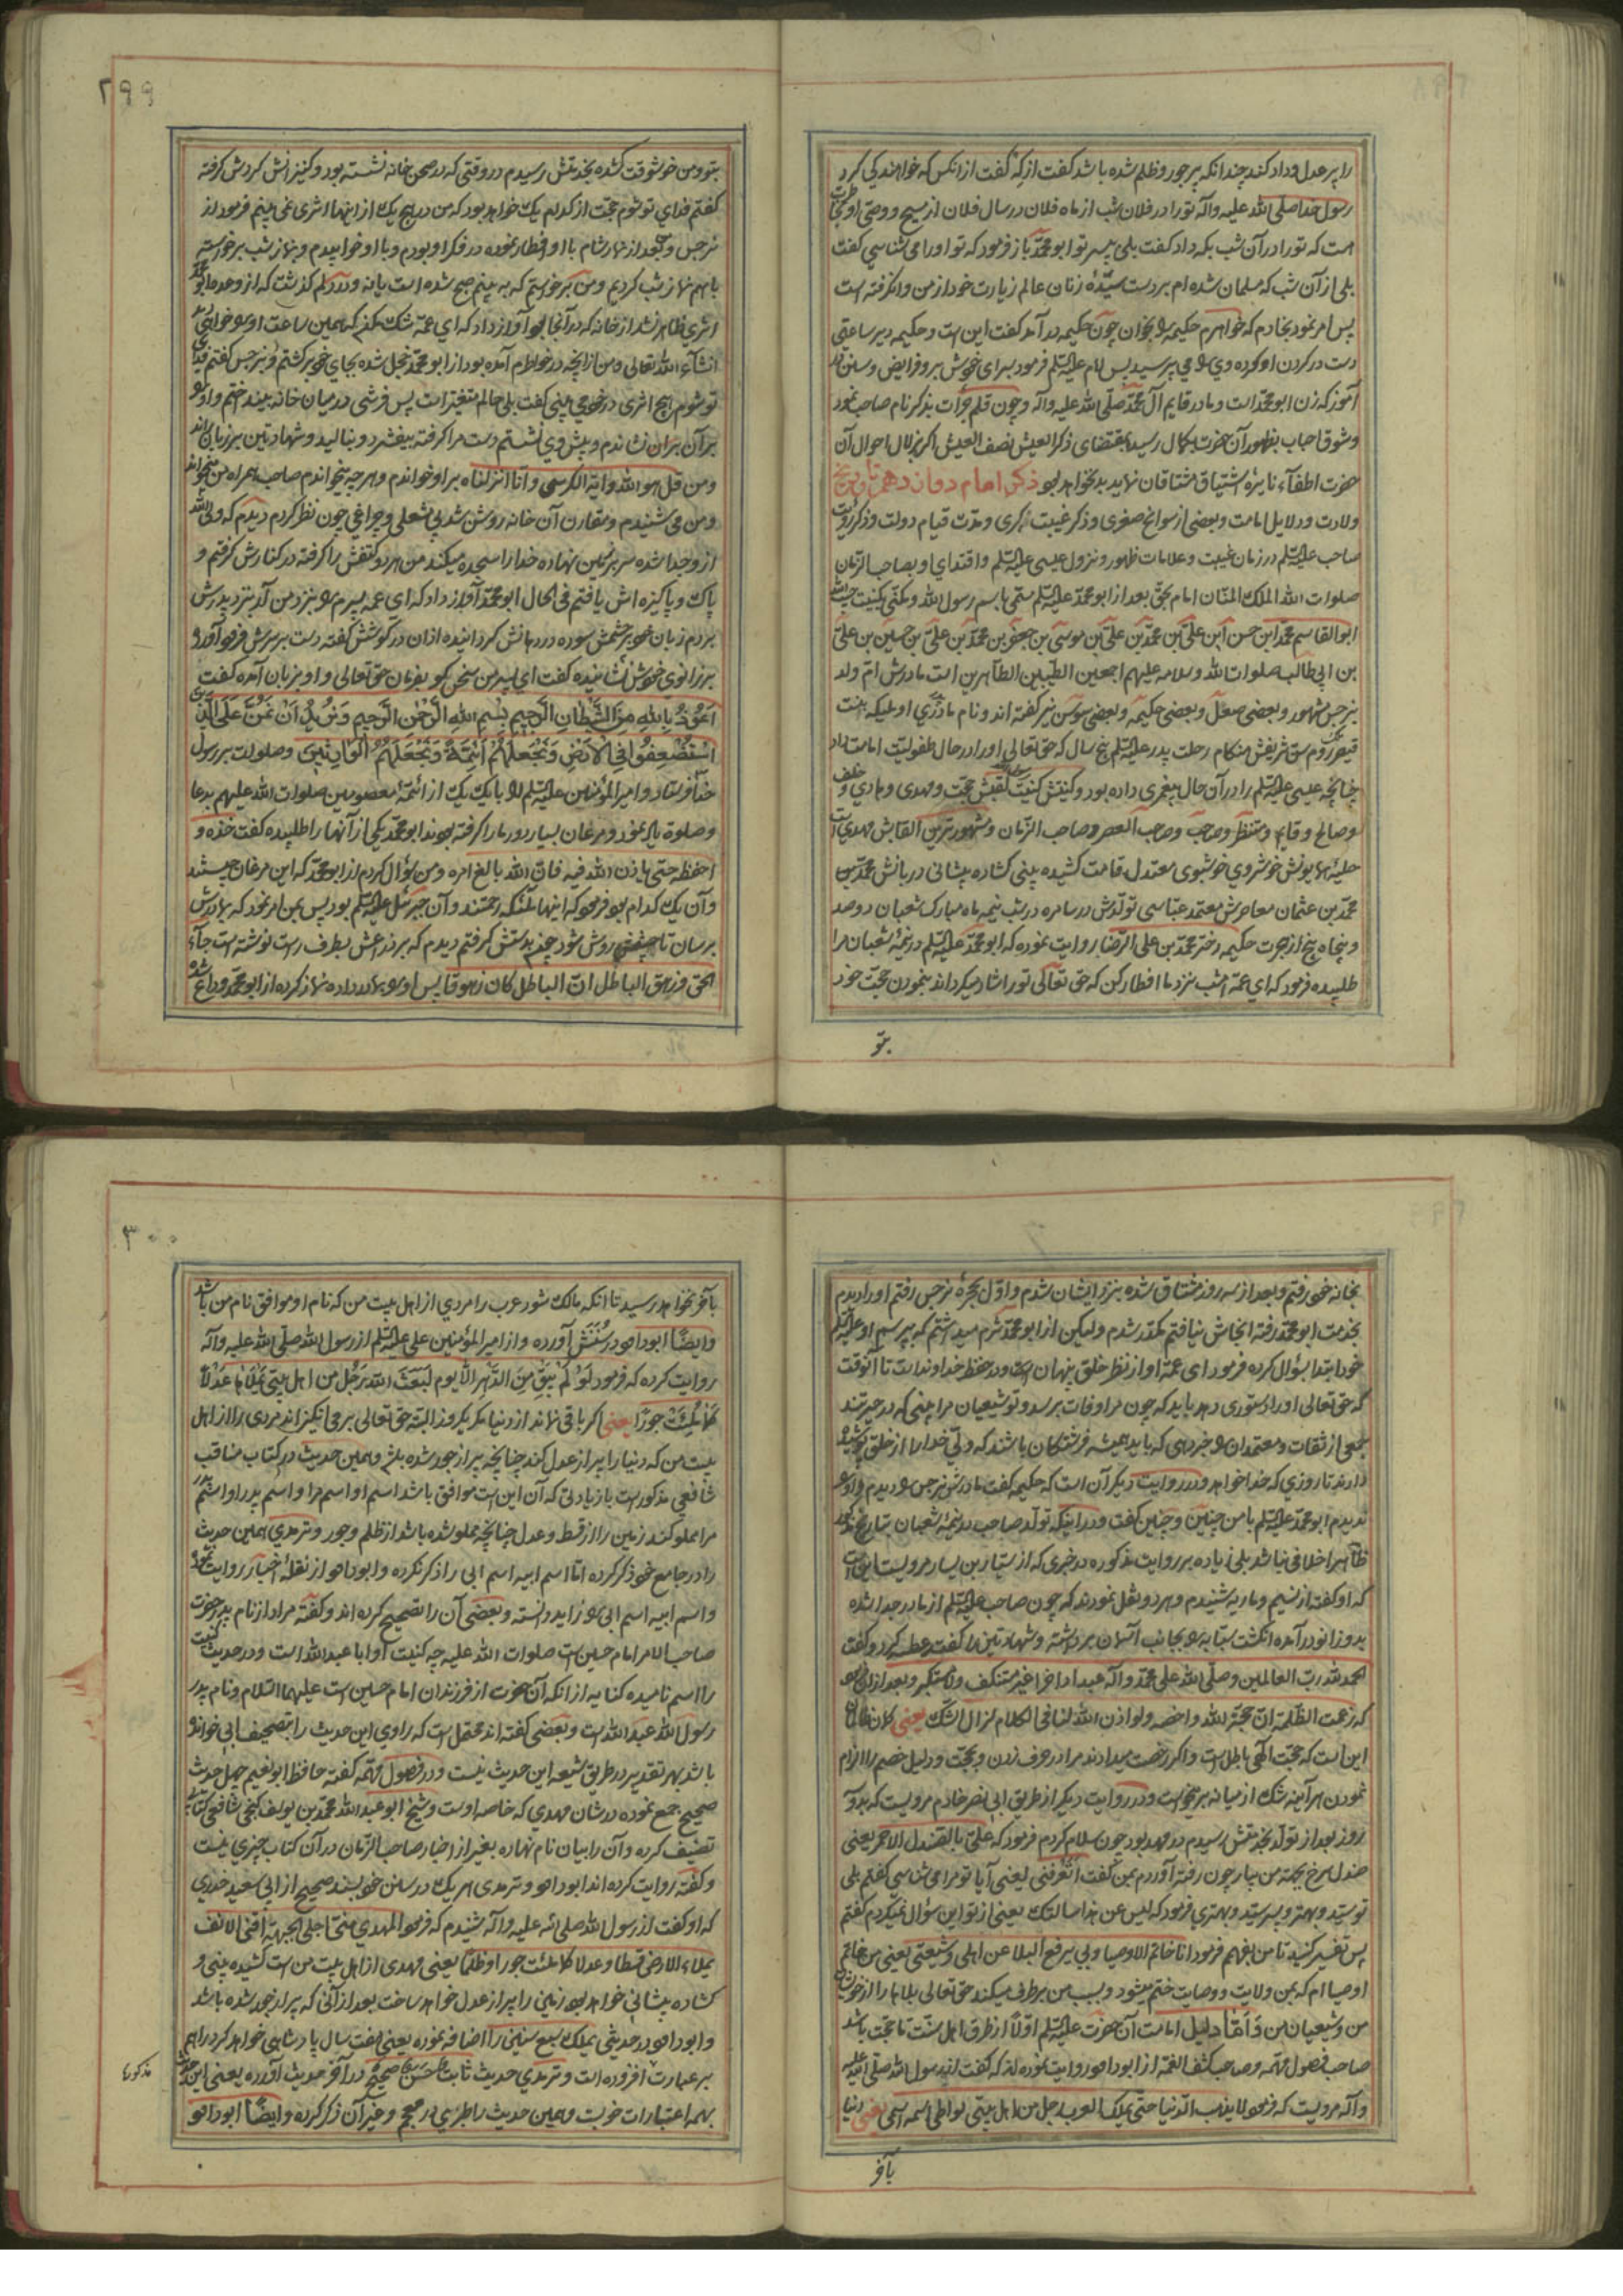 را پر عدل و داد کند چندانکه پر جور و ظلم شده باشد گفت از که گفت از انکس که خواهندگی کرد
رسول خدا صلی الله علیه وآله تو را در فلان شب از ماه فلان در سال فلان از مسیح و وصی او
است که تو را در آن شب بکه داد گفت بلی بپسر تو ابو محمد باز فرمود که تو او را می شناسی گفت
بلی از آن شب که مسلمان شده ام بر دست سیدۀ زنان عالم زیارت خود از من وانگرفته است
پس امر نمود بخادم که خواهرم حکیمه را بخوان چون حکیمه در آمد گفت این است و حکیمه دیر ساعتی
دست در گردن او کرده وی را می پرسید پس امام علیه السلم فرمود بسرای خویش بر و فرایض و سنن
آموز که زن ابو محمد است و مادر قایم آل محمد صلی الله علیه وآله و چون قلم جرات بذکر نام صاحب نمود
و شوق احباب بظهور آن حضرت بکمال رسید بمقتضای ذکر العیش نصف العیش اگر بزلال احوال آن
حضرت اطفآء نایرۀ اشتیاق مشتاقان نماید بد نخواهد بود ذکر امام دوازدهم تاریخ
ولادت و دلایل امامت و بعضی از سوانح صغری و ذکر غیبت کبری و مدت قیام دولت و ذکر رویت
صاحب علیه السلم در زمان غیبت و علامات ظهور و نزول عیسی علیه السلم و اقتدای او بصاحب الزمان
صلوات الله الملک المنان امام بحق بعد از ابو محمد علیه السلم مسمی باسم رسول الله و مکنی بکنیت
ابو القاسم محمد ابن حسن ابن علی بن محمد بن علی بن موسی بن جعفر بن محمد بن علی بن حسین بن علی
بن ابی طالب صلوات الله وسلامه علیهم اجمعین الطیبین الطاهرین است مادرش ام ولد
نرجس مشهور و بعضی صقل و بعضی حکیمه و بعضی سوسن نیز گفته اند و نام مادری او ملیکه بنت
قیصر روم سن شریفش هنگام رحلت پدر علیه السلم پنج سال که حق تعالی او را در حال طفولیت امامت داد
چنانچه عیسی علیه السلم را در آن حال پیغمبری داده بود و کنیتش کنیت لقبش حجت و مهدی و هادی و خلف
و صالح و قایم و منتظر و صاحب و صاحب العصر و صاحب الزمان و مشهورترین القابش مهدی است
حلیۀ همایونش خوشروی خوشبوی معتدل قامت کشیده بینی گشاده پیشانی دربانش محمد بن
محمد بن عثمان معاصرش معتمد عباسی تولدش در سامره در شب نیمه ماه مبارک شعبان دوصد
و پنجاه پنج از هجرت حکیمه دختر محمد بن علی الرضا روایت نموده که ابو محمد علیه السلم در نیمۀ شعبان مرا
طلبیده فرمود که ای عمه امشب نزد ما افطار کن که حق تعالی تو را شاد میگرداند بنمودن حجت خود
بتو
۲۹۹
بتو و من خوشوقت گشته بخدمتش رسیدم در وقتی که در صحن خانه نشسته بود و کنیزانش گردش گرفته
گفتم فدای تو شوم حجت از کدام یک خواهد بود که من در هیچ یک از اینها اثری نمی بینم فرمود از
نرجس و بعد از نماز شام با او افطار نموده در فکر او بودم و با او خوابیدم و نماز شب برخواسته
باهم نماز شب کردیم و من برخواستم که به بینم صبح شده است یا نه و در دلم گذشت که از وعده ابو محمد
اثری ظاهر نشد از خانه که در آنجا بود آواز داد که ای عمه شک مکن که همین ساعت او را خواهی دید
انشآء الله تعالی و من از آنچه در خواطرم آمده بود از ابو محمد خجل شده بجای خود برگشتم و بنرجس گفتم فدای
تو شوم هیچ اثری در خود می بینی گفت بلی حالم متغیر است پس فرشی در میان خانه بینداختم و او را
بر آن بران نشاندم و پیش وی نشستم دست مرا گرفته بیفشرد و بنالید و شهادتین بر زبان راند
و من قل هو الله و ایة الکرسی و انا انزلناه بر او خواندم و هر چه میخواندم صاحب همراه من میخواند
و من می شنیدم و مقارن آن خانه روشن شد بی شعلی و چراغی چون نظر کردم دیدم که ولی الله
از و جدا شده سر بر زمین نهاده خدا را سجده میکند من هر دو کتفش را گرفته در کنارش گرفتم و
پاک و پاکیزه اش یافتم فی الحال ابو محمد آواز داد که ای عمه پسرم را بنزد من آر بنزد پدرش
بردم زبان خود بر چشمش سوده در دهانش گردانیده اذان در گوشش گفته دست بر سرش فرود آورد
بر زانوی خویش نشانیده گفت ای پسر من سخن گو بفرمان حق تعالی و او بزبان آمده گفت
اَعُوذُ بِاللهِ مِنَ الشَّیْطَانِ الرَّجِیمِ بِسْمِ اللهِ الرَّحْمٰنِ الرَّحِیمِ وَنُرِیدُ اَنْ نَمُنَّ عَلَی الَّذِینَ
اسْتُضْعِفُوا فِی الْاَرْضِ وَنَجْعَلَهُمْ اَئِمَّةً وَنَجْعَلَهُمُ الْوَارِثِینَ و صلوات بر رسول
خدا فرستاد و امیر المؤمنین علیه السلم را با یک یک از ائمۀ معصومین صلوات الله علیهم بدعا
و صلوة یاد نمود و مرغان بسیار دور ما را گرفته بودند ابو محمد یکی از آنها را طلبیده گفت خذه و
احفظه حتی یاذن الله فیه فان الله بالغ امره و من سؤال کردم از ابو محمد که این مرغان چیستند
و آن یک کدام بود فرمود که اینها ملئکه رحمتند و آن جبرئیل علیه السلم بود پس بمن امر نمود که بمادرش
برسان تا چشمش روشن شود چون بدستش گرفتم دیدم که بر ذراعش بطرف راست نوشته است جآء
الحق و زهق الباطل ان الباطل کان زهوقا پس او را بمادر داده نماز کرده از ابو محمد وداع شده
بخانه خود رفتم و بعد از سه روز مشتاق شده بنزد ایشان شدم و اول بحجرۀ نرجس رفتم او را دیدم
بخدمت ابو محمد رفته آنجاش نیافتم مکدر شدم و لیکن از ابو محمد شرم میداشتم که بپرسم او علیه السلم
خود ابتدا بسؤال کرده فرمود ای عمه او از نظر خلق پنهان است و در حفظ خداوند است تا آنوقت
که حق تعالی او را دستوری دهد باید که چون مرا وفات برسد و تو شیعیان مرا بینی که در حیرتند
بجمعی از ثقات و معتمدان را خبر دهی که باید همیشه فرشتگان باشند که ولی خدا را از خلق پوشیده
دارند تا روزی که خدا خواهد و در روایت دیگر آن است که حکیمه گفت مادرش نرجس را دیدم و او را
ندیدم ابو محمد علیه السلم با من چنین و چنین گفت و در اینکه تولد صاحب در نیمۀ شعبان بتاریخ مذکور
ظاهرا خلافی نباشد بلی زیاده بر روایت مذکوره در خبری که از سیار بن یسار مرویست این است
که او گفته از نسیم و ماریه شنیدم و هر دو نقل نمودند که چون صاحب علیه السلم از مادر جدا شده
بدو زانو در آمده انگشت سبابه را بجانب آسمان برداشته و شهادتین را گفت عطسه کرد و گفت
الحمد لله رب العالمین وصلی الله علی محمد وآله عبدا داخرا غیر مستنکف ولا مستکبر و بعد از ان فرمود
که زعمت الظلمة ان حجة الله داحضه ولو اذن الله لنا فی الکلام لزال الشک یعنی گمان ظالمان
این است که حجت الهی باطل است و اگر رخصت میدادند مرا در حرف زدن و بحجت و دلیل خصم را الزام
نمودن هر آینه شک از میانه بر میخواست و در روایت دیگر از طریق ابی نصر خادم مرویست که بدو
روز بعد از تولد بخدمتش رسیدم در مهد بود چون سلام کردم فرمود که علی بالصندل الاحمر یعنی
صندل سرخ بجهت من بیار چون رفته آوردم بمن گفت اَتَعْرِفُنی یعنی آیا تو مرا می شناسی گفتم بلی
تو سید و بهتر و پسر سید و بهتری فرمود که لیس عن هذا سالتک یعنی از تو این سؤال نمیکردم گفتم
پس تفسیر کنید تا من بفهم فرمود انا خاتم الاوصیا وبی یرفع البلا عن اهلی وشیعتی یعنی من خاتم
اوصیا ام که بمن ولایت و وصایت ختم میشود و بسبب من برطرف میکند حق تعالی بلاها را از خویشان
من و شیعیان من وَاَمَّا دلیل امامت آن حضرت علیه السلم اولا از طرق اهل سنت تا حجت باشد
صاحب فصول مهمه و صاحب کشف الغمه از ابو داود روایت نموده اند که گفت از رسول الله صلی الله علیه
وآله مرویست که فرمود لا یذهب الدنیا حتی یملک العرب رجل من اهل بیتی یواطی اسمه اسمی یعنی دنیا
بآخر
۳۰۰
بآخر نخواهد رسید تا انکه مالک شود عرب را مردی از اهل بیت من که نام او موافق نام من باشد
وایضًا ابو داود در سُنَنَش آورده و از امیر المؤمنین علی علیه السلم از رسول الله صلی الله علیه وآله
روایت کرده که فرمود لَوْ لَمْ یَبْقَ مِنَ الدَّهْرِ الَّا یوم لَبَعَثَ الله رَجُل من اهل بیتی یَمْلَاُها عَدْلًا
کَمَا مُلِئَتْ جَورًا یعنی اگر باقی نماند از دنیا مگر یکروز البته حق تعالی بر می انگیزاند مردی را از اهل
بیت من که دنیا را پر از عدل کند چنانچه پر از جور شده باشد و همین حدیث در کتاب مناقب
شافعی مذکور است با زیادتی که آن این است موافق باشد اسم او اسم مرا و اسم پدر او اسم پدر
مرا مملو کند زمین را از قسط و عدل چنانچه مملو شده باشد از ظلم و جور و ترمدی همین حدیث
را در جامع خود ذکر کرده اما اسم ابیه اسم ابی را ذکر نکرده و ابو داود از نقلۀ اخبار روایت نموده
و اسم ابیه اسم ابی را زاید دانسته و بعضی آن را تصحیح کرده اند و گفته مراد از نام پدر حضرت
صاحب الامر امام حسین است صلوات الله علیه چه کنیت او ابا عبد الله است و در حدیث کنیت
را اسم نامیده کنایه از انکه آن حضرت از فرزندان امام حسین است علیهما السلام و نام پدر
رسول الله عبد الله است و بعضی گفته اند محتمل است که راوی این حدیث را بتصحیف ابی خوانده
باشد بهر تقدیر در طریق شیعه این حدیث نیست و در فصول مهمه گفته حافظ ابو نعیم چهل حدیث
صحیح جمع نموده در شان مهدی که خاصه اوست و شیخ ابو عبد الله محمد بن یوسف کنجی شافعی کتابی
تصنیف کرده و آن را بیان نام نهاده بغیر از اخبار صاحب الزمان در آن کتاب چیزی نیست
و گفته روایت کرده اند ابو داود و ترمدی هر یک در سنن خود بسند صحیح از ابی سعید خدری
که او گفت از رسول الله صلی الله علیه وآله شنیدم که فرمود المهدی منی اجلی الجبهة اقنی الانف
یملاء الارض قسطا وعدلا کما ملئت جورا وظلما یعنی مهدی از اهل بیت من است کشیده بینی و
گشاده پیشانی خواهد بود زمین را پر از عدل خواهد ساخت بعد از آنی که پر از جور شده باشد
و ابو داود در حدیثی یملک سبع سنین را اضافه نموده یعنی هفت سال پادشاهی خواهد کرد و او هم
بر عبارت افزوده است و ترمدی حدیث ثابت حَسَن صحیح در آخر حدیث آورده یعنی این حدیث
بهمه اعتبارات خوبست و همین حدیث را طبری در معجم و غیر آن ذکر کرده وایضًا ابو داود